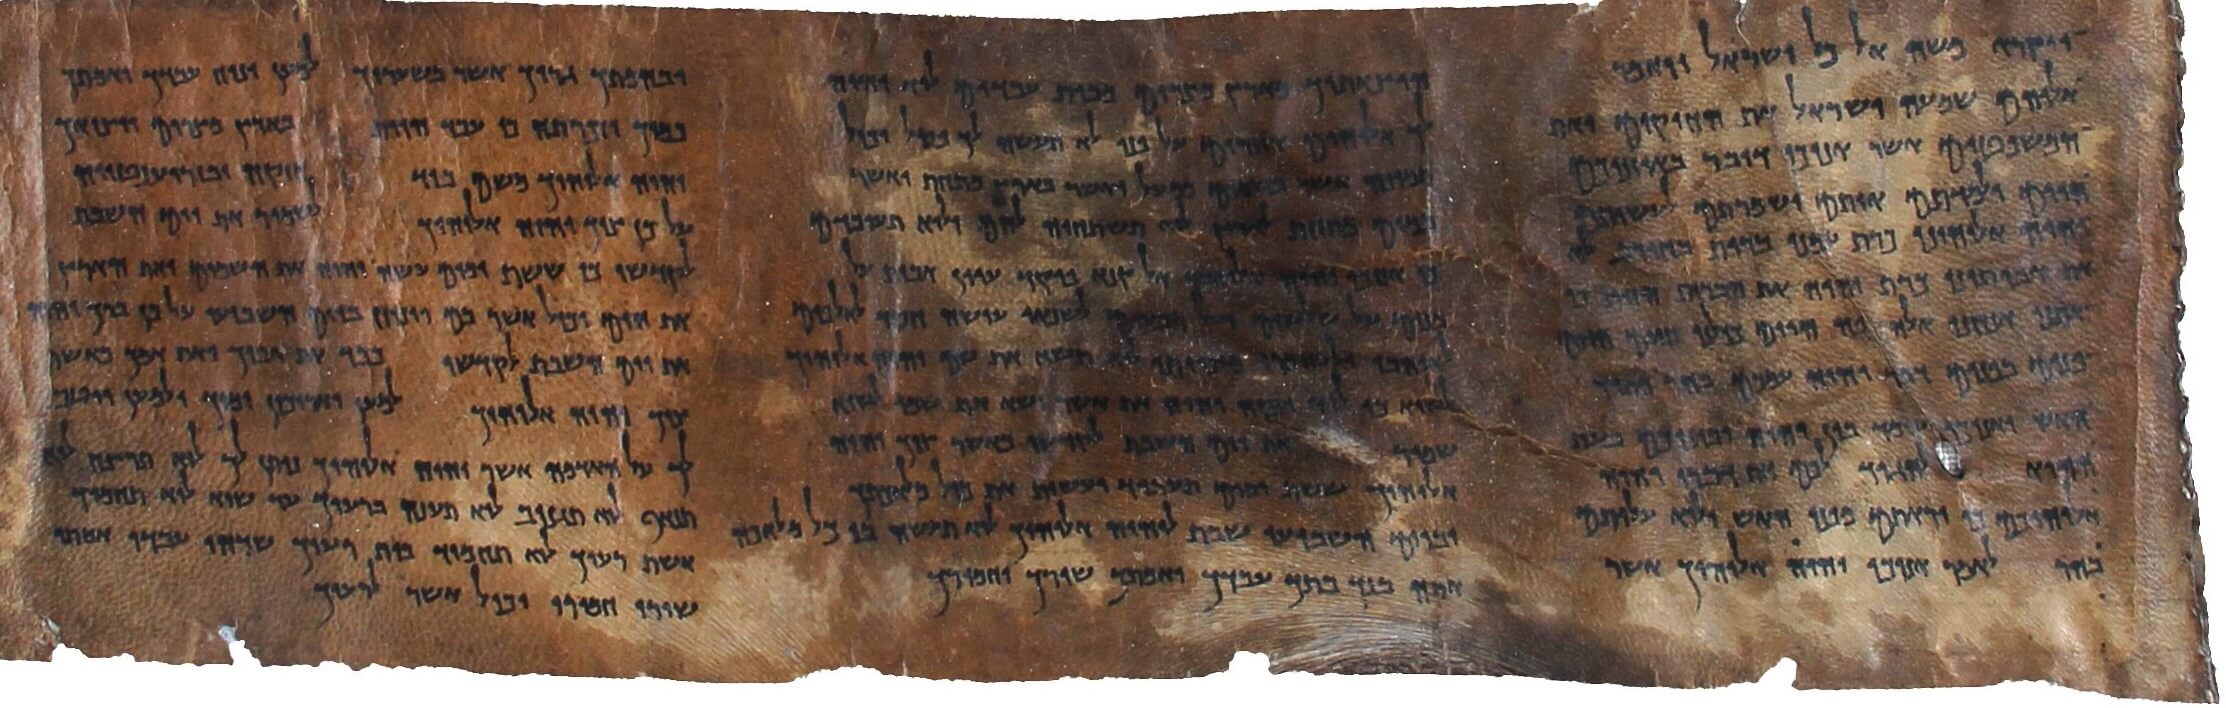 ויקרא משה אל כל ישראל ויאמר
אליהם שמעה ישראל את החוקים ואת
המשפטים אשר אנוכי דובר באוזניכם
היום ולמדתם אותם ושמרתם לעשותם
יהוה אלוהינו כרת עמנו ברית בחורב לא
את אבותינו כרת יהוה את הברית הזות כי
אתנו אנחנו אלה פה היום כולנו חיים היום
פנים בפנים דבר יהוה עמכם בהר מתוך
האש ואנוכי עומד בין יהוה וביניכם בעת
ההיא להגיד לכם את דברי יהוה
אלוהיכם כי יראתם מפני האש ולא עליתם
בהר לאמר אנוכי יהוה אלוהיך אשר
הוצאתיך מארץ מצרים מבית עבדים לוא יהיה
לך אלוהים אחרים על פני לא תעשה לך פסל וכול
תמונה אשר בשמים ממעל ואשר בארץ מתחת ואשר
במים מתחת לארץ לוא תשתחוה להם ולוא תעבדם
כי אנכי יהוה אלוהיך אל קנא פוקד עוון אבות על
בנים על שלשים ועל רבעים לשנאי עושה חסד לאלפים
לאוהבי ולשומרי מצוותי לוא תשא את שם יהוה אלוהיך
לשוא כי לוא ינקה יהוה את אשר ישא את שמו לשוא
שמור את יום השבת לקדשו כאשר צוך יהוה
אלוהיך ששת ימים תעבוד ועשית את כול מלאכתך
וביום השביעי שבת ליהוה אלוהיך לוא תעשה בו כל מלאכה
אתה בנך בתך עבדך ואמתך שורך וחמורך
ובהמתך גריך אשר בשעריך למען ינוח עבדך ואמתך
כמוך וזכרתה כי עבד היית בארץ מצרים ויציאך
יהוה אלוהיך משם ביד חזקה ובזרוע נטויה
על כן צוך יהוה אלוהיך לשמור את יום השבת
לקדשו כי ששת ימים עשה יהוה את השמים ואת הארץ
את הים וכול אשר בם וינוח ביום השביעי על כן ברך יהוה
את יום השבת לקדשו כבד את אביך ואת אמך כאשר
צוך יהוה אלוהיך למען יאריכון ימיך ולמען ייטב
לך על האדמה אשר יהוה אלוהיך נותן לך לוא תרצח לוא
תנאף לוא תגנוב לוא תענה ברעיך עד שוא לוא תחמוד
אשת רעיך לוא תחמוד בית רעיך שדהו עבדו אמתו
שורו חמורו וכול אשר לרעיך